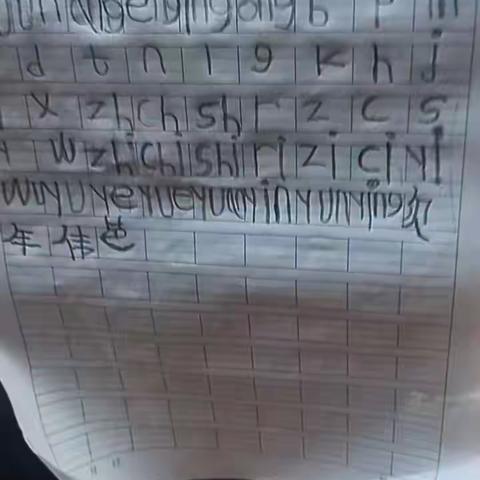 ang eng ing ong b p m
d t n l g k h j
x zh ch sh r z c s
w zhi chi shi ri zi ci yi
wu yu ye yue yuan yin yun ying
年 佳